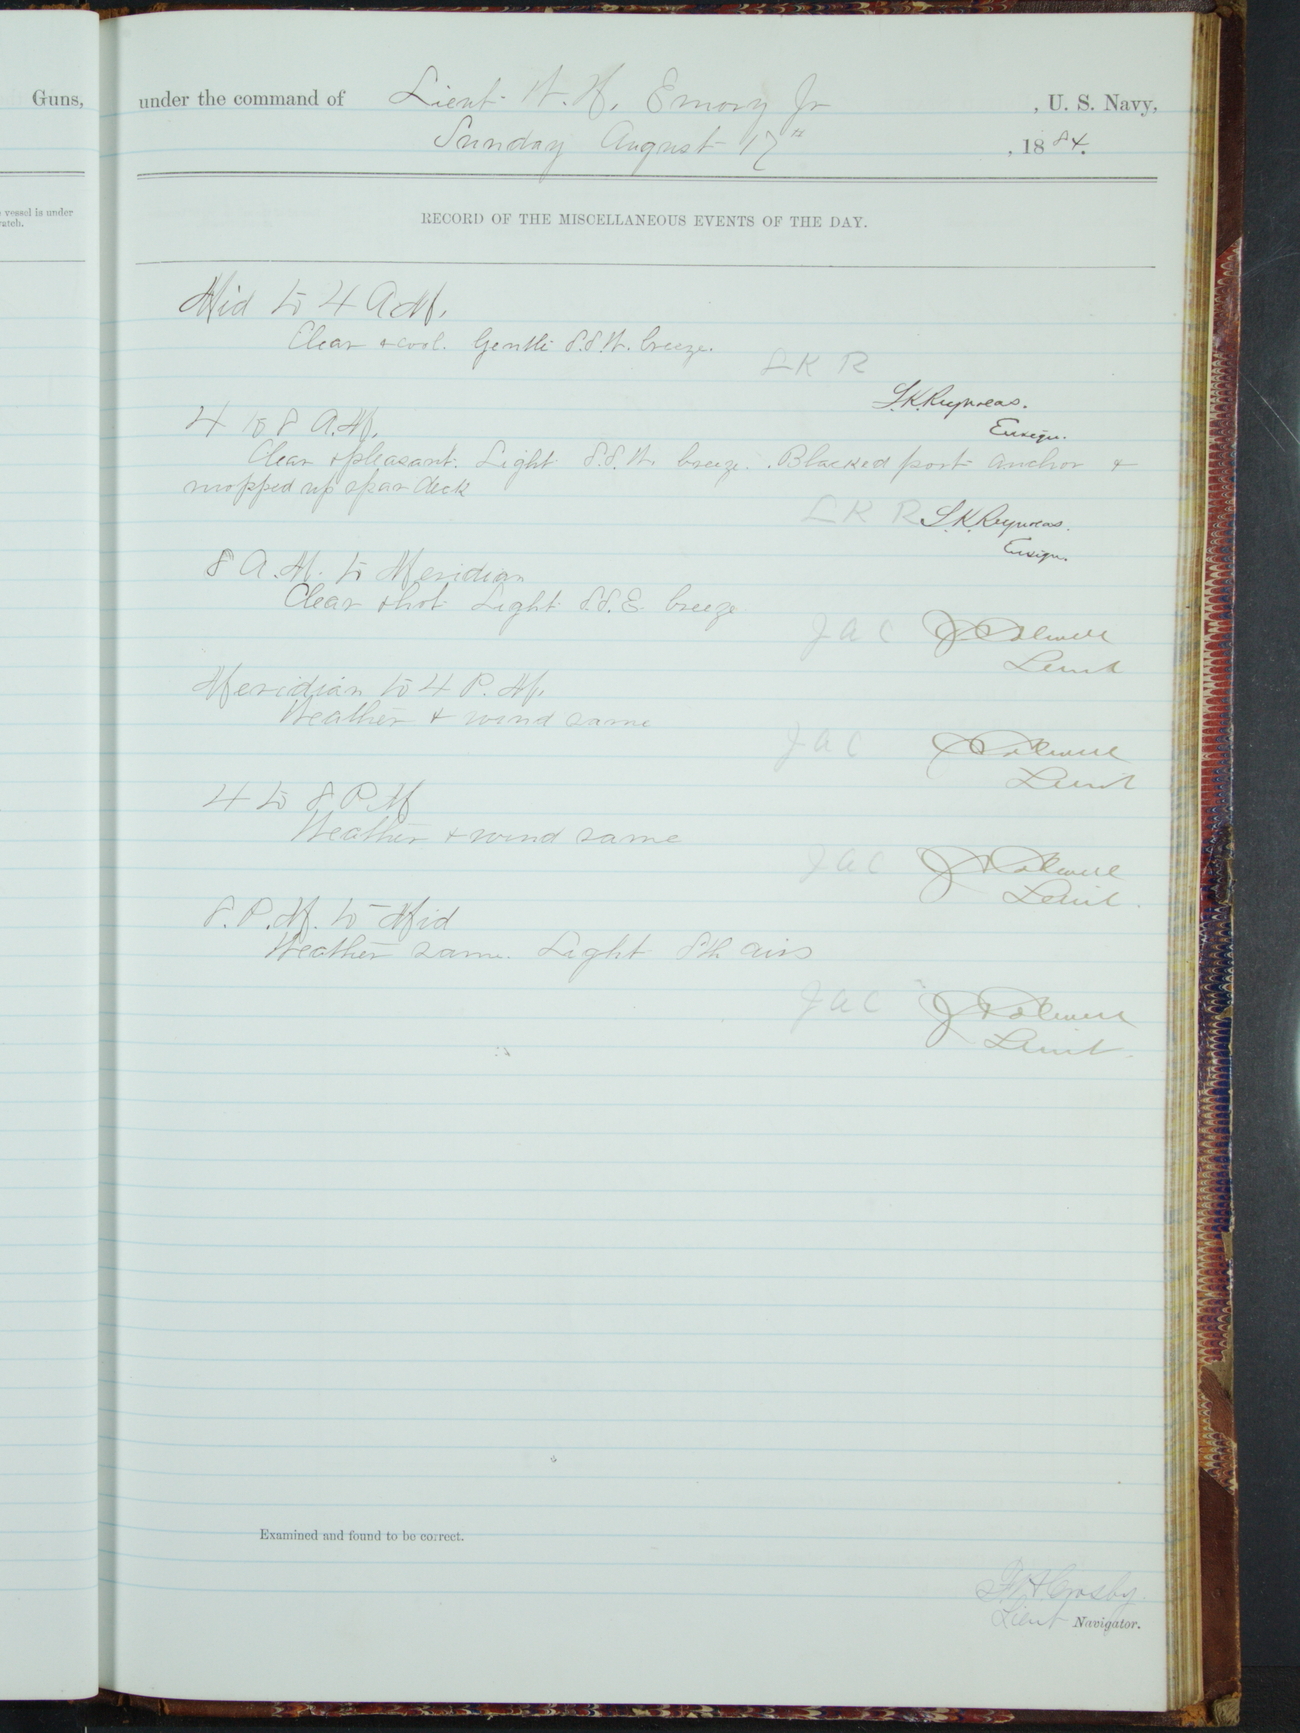 Guns,
under the command of Lieut. W. H. Emory Jr , U. S. Navy,
Sunday August 17th , 1884.
e vessel is under
watch.
RECORD OF THE MISCELLANEOUS EVENTS OF THE DAY.
Mid to 4 A.M.
Clear & cool. Gentle S.S.W. breeze.
L K R
L.K. Reynolds.
Ensign.
4 to 8 A.M.
Clear & pleasant. Light S.S.W. breeze. Blacked port anchor &
mopped up spar deck
L K R L.K. Reynolds.
Ensign.
8 A.M. to Meridian
Clear & hot Light S.S.E. breeze
J A C J A Colwell
Lieut
Meridian to 4 P.M.
Weather & wind same
J A C J A Colwell
Lieut
4 to 8 P.M
Weather & wind same
J A C J A Colwell
Lieut.
8. P.M. to Mid
Weather same. Light Sth airs
J A C J A Colwell
Lieut.
Examined and found to be correct.
Crosby
Lieut Navigator.